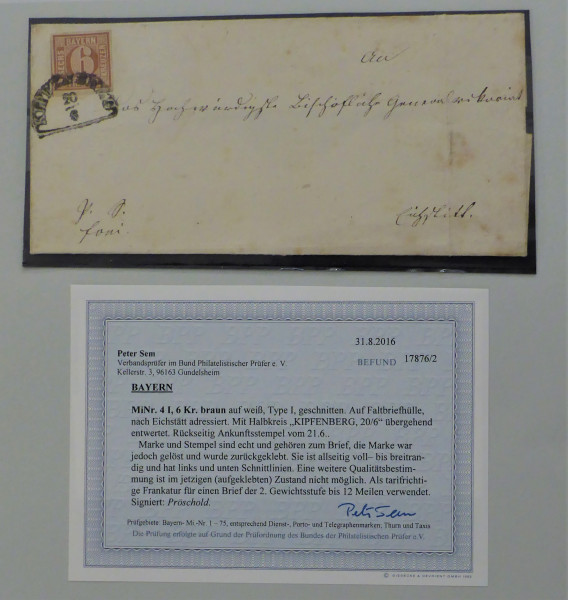 BAYERN
6
An
das Hochwürdigste Bischöfliche General vikariat
P. S.
frei.
Eichstätt.
31.8.2016
Peter Sem
Verbandsprüfer im Bund Philatelistischer Prüfer e. V.
Kellerstr. 3, 96163 Gundelsheim
BEFUND 17876/2
BAYERN
MiNr. 4 I, 6 Kr. braun auf weiß, Type I, geschnitten. Auf Faltbriefhülle,
nach Eichstätt adressiert. Mit Halbkreis „KIPFENBERG, 20/6“ übergehend
entwertet. Rückseitig Ankunftsstempel vom 21.6..
Marke und Stempel sind echt und gehören zum Brief, die Marke war
jedoch gelöst und wurde zurückgeklebt. Sie ist allseitig voll– bis breitran-
dig und hat links und unten Schnittlinien. Eine weitere Qualitätsbestim-
mung ist im jetzigen (aufgeklebten) Zustand nicht möglich. Als tarifrichti-
ge Frankatur für einen Brief der 2. Gewichtsstufe bis 12 Meilen verwendet.
Signiert: Pröschold.
Peter Sem
Prüfgebiete: Bayern- Mi.-Nr. 1 - 75, entsprechend Dienst-, Porto- und Telegraphenmarken, Thurn und Taxis
Die Prüfung erfolgte auf Grund der Prüfordnung des Bundes der Philatelistischen Prüfer e.V.